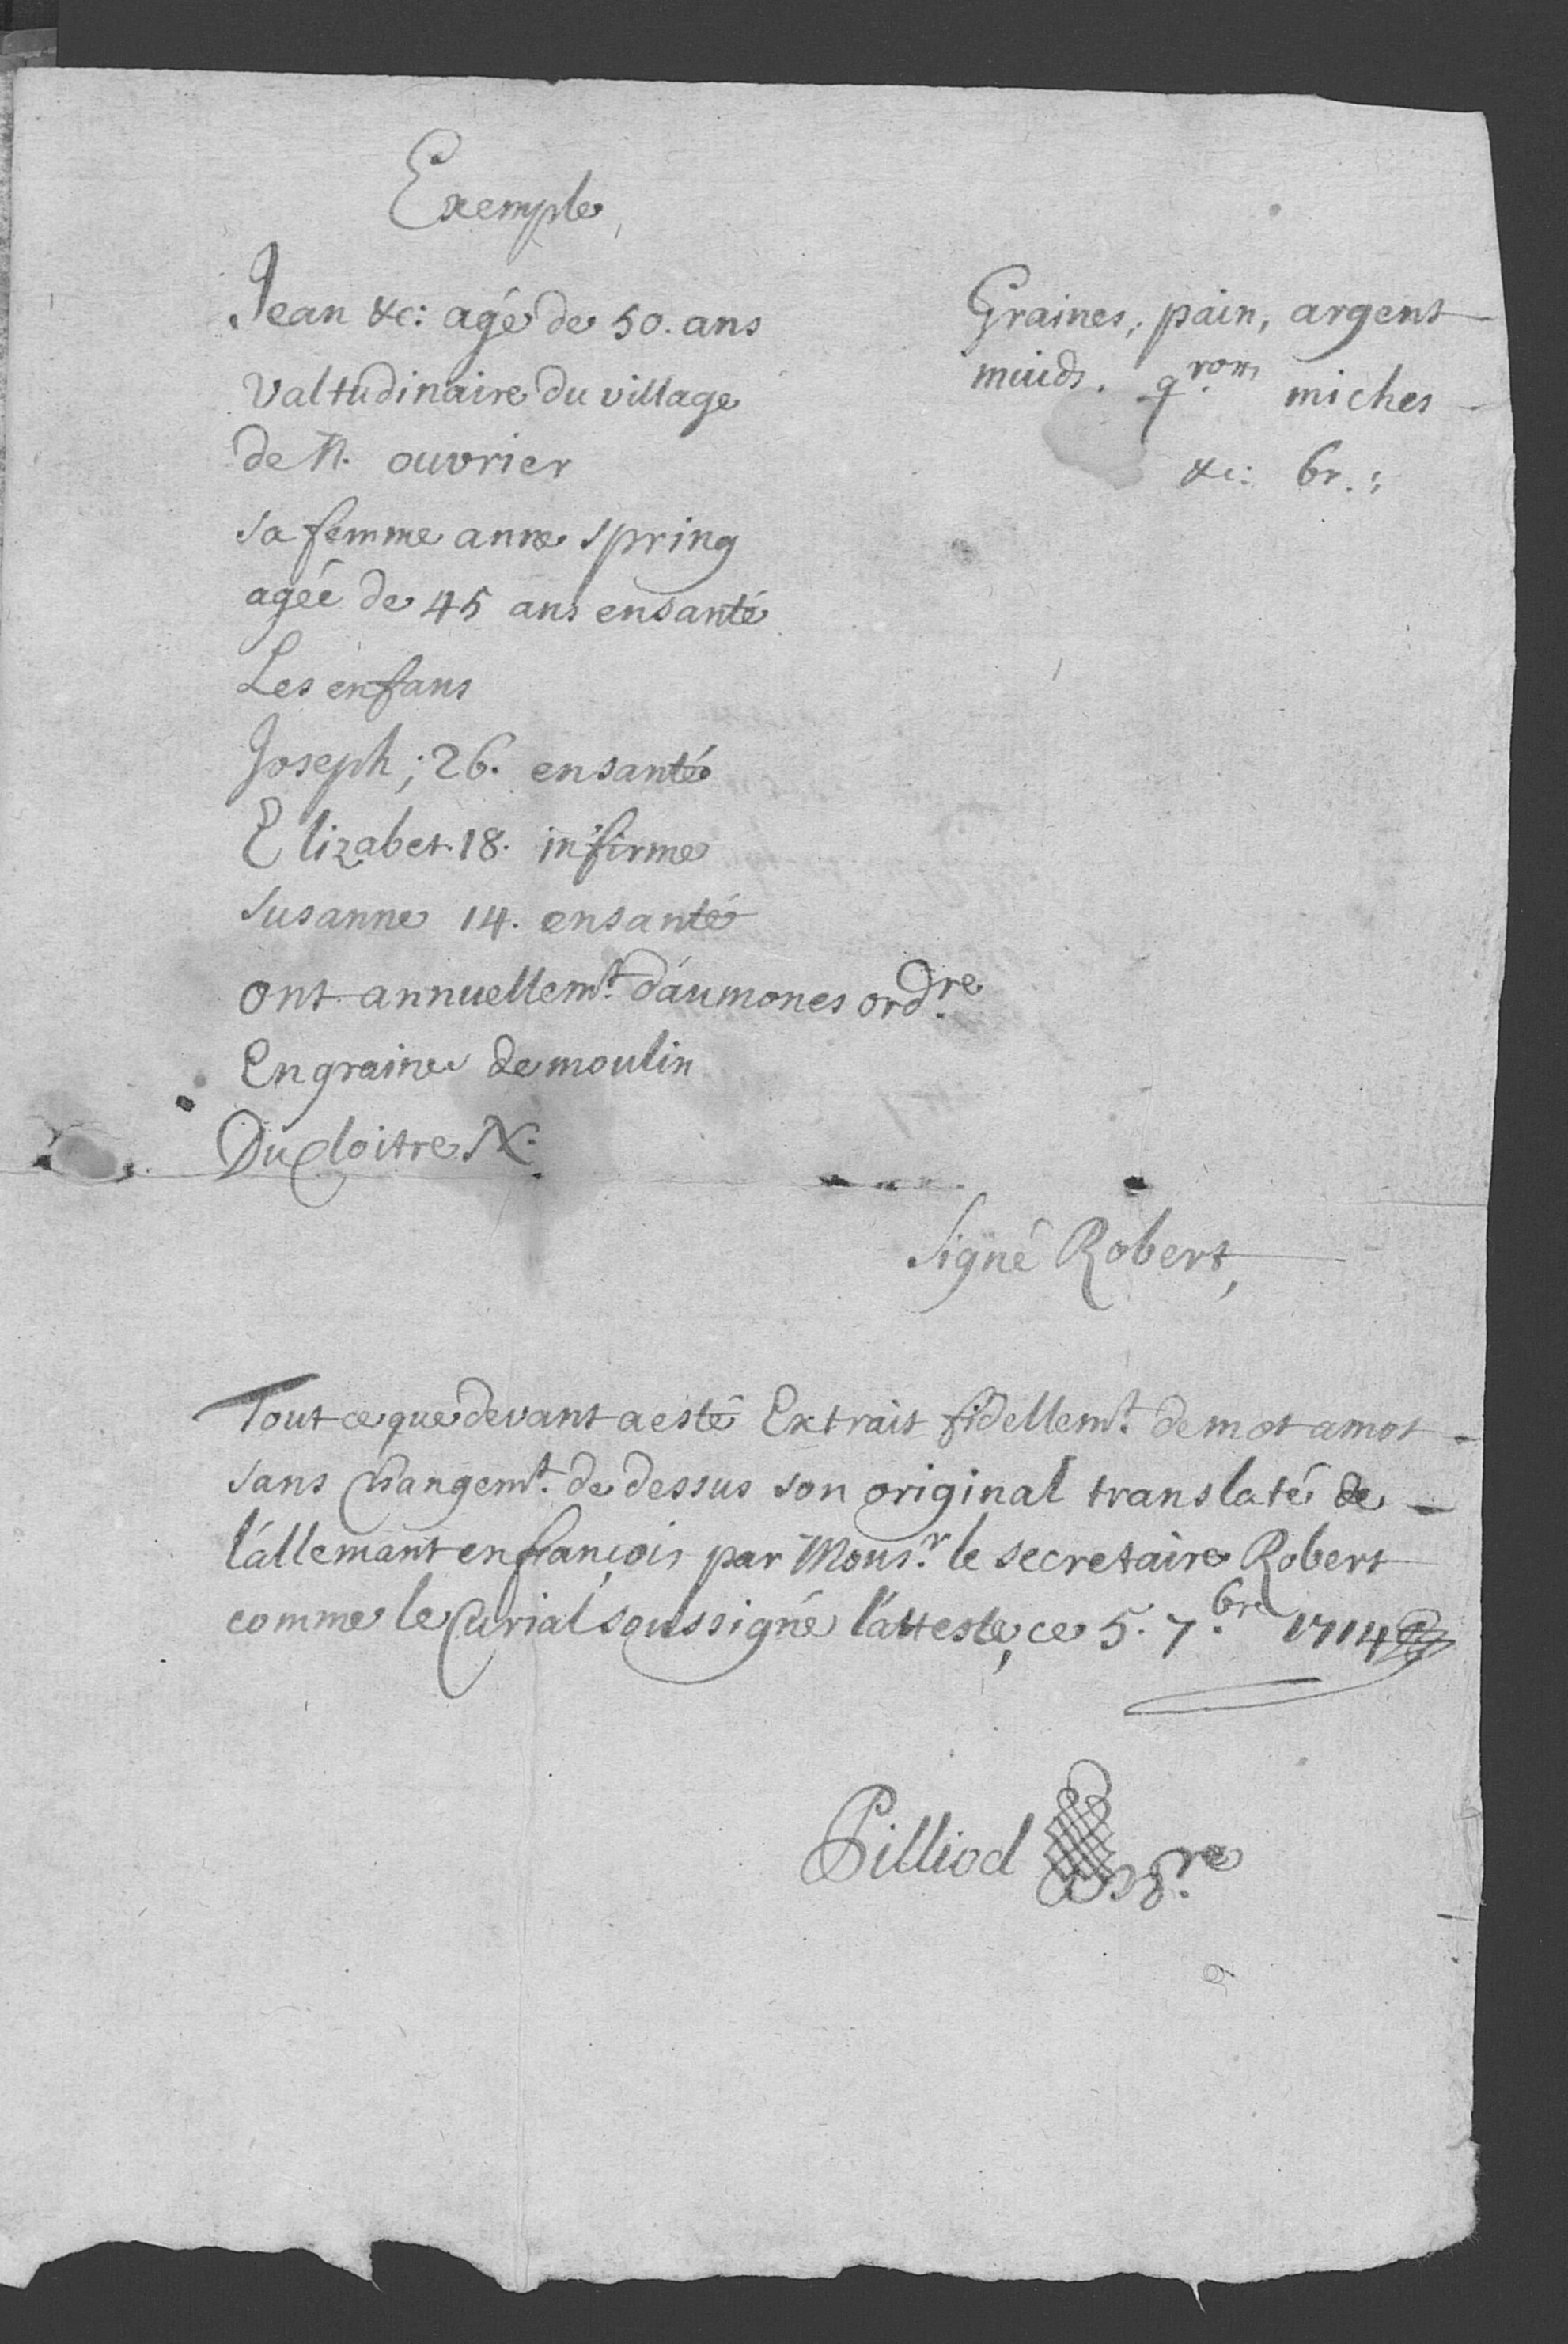 Exemple,
Jean &c: agé de 50. ans
Valtudinaire du village
de N. ouvrier
sa femme anne spring
agée de 45 ans en santé
Les enfans
Joseph; 26. en santé
Elizabet. 18. infirme
susanne 14. en santé
ont annuellemt. d'aumones ordre.
En graine de moulin
Du Cloitre N.
Graines, pain, argent
muids. qrons miches
&c: br.:
signé Robert,
Tout ce que devant a esté Extrait fidellemt. de mot a mot
sans changemt. de dessus son original translaté de
l'allemant en françois par Monsr. le secretaire Robert
comme le Curial soussigné l'atteste, ce 5. 7.bre 1714
Pilliod